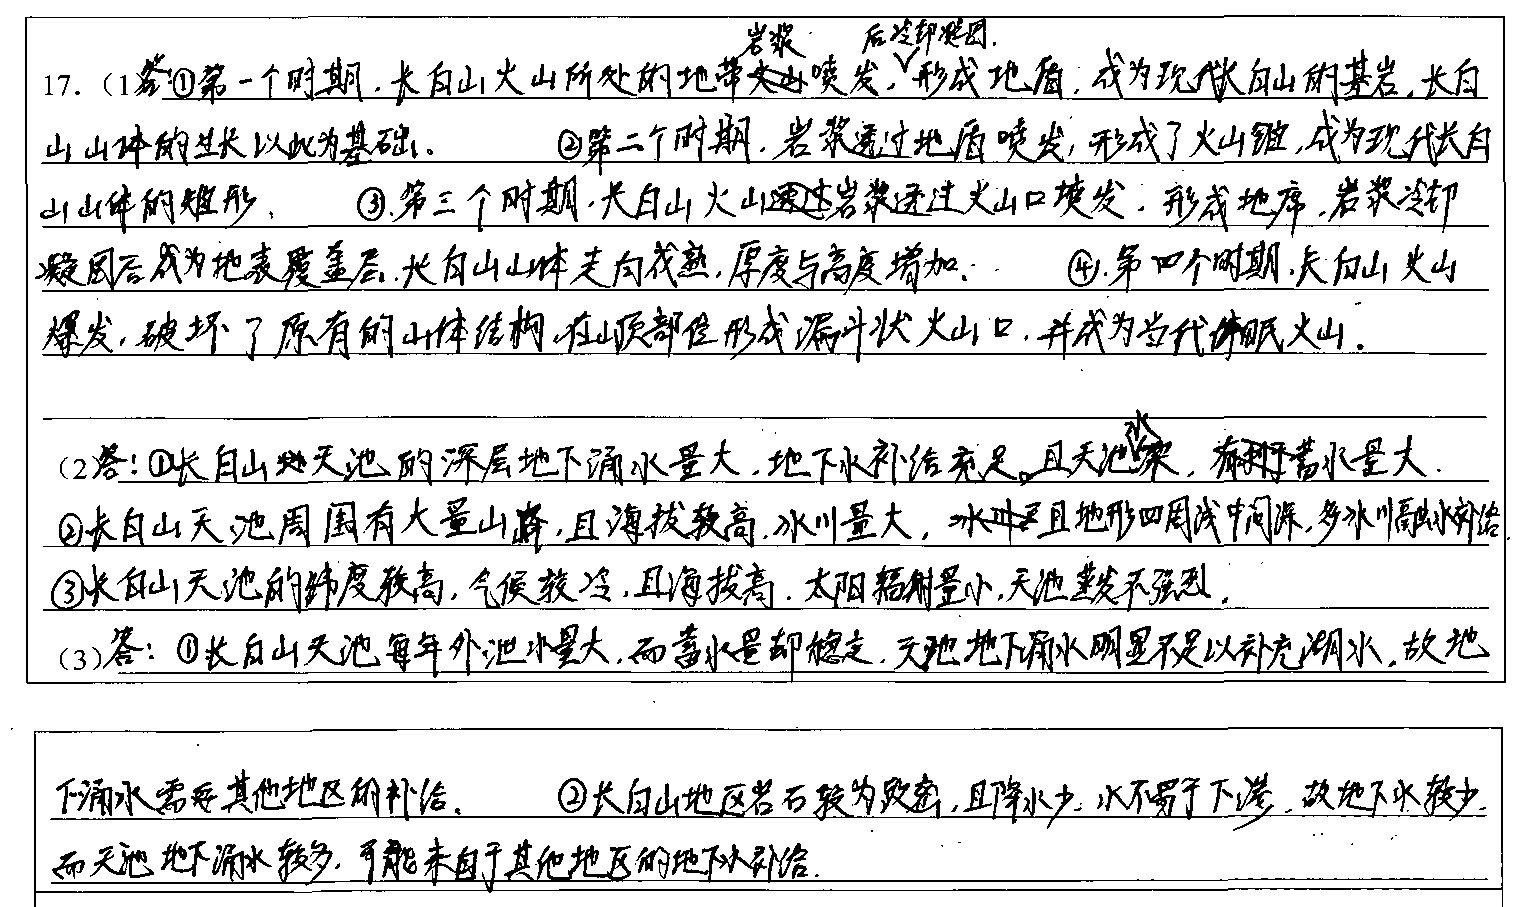 岩浆 后冷却凝固.
17.（1答:①第一个时期,长白山火山所处的地带喷发,形成地盾,成为现代长白山的基岩,长白
山山体的生长以此为基础。 ②第二个时期,岩浆透过地盾喷发,形成了火山锥,成为现代长白
山山体的雏形. ③.第三个时期,长白山火山岩浆透过火山口喷发.形成地席,岩浆冷却
凝固后成为地表覆盖层,长白山山体走向成熟,厚度与高度增加. ④.第四个时期,长白山火山
爆发,破坏了原有的山体结构,在山顶部位形成漏斗状火山口,并成为当代休眠火山.
水
（2答:①长白山天池的深层地下涌水量大,地下水补给充足。且天池深,蓄水量大.
②长白山天池周围有大量山峰,且海拔较高,冰川量大,且地形四周浅中间深,多冰川融水补给.
③长白山天池的纬度较高,气候较冷,且海拔高,太阳辐射量小,天池蒸发不强烈.
（3)答:①长白山天池每年外泄水量大,而蓄水量却稳定,天池地下涌水明显不足以补充湖水,故地
下涌水需要其他地区的补给. ②长白山地区岩石较为致密,且降水少,水不易于下渗,故地下水较少.
而天池地下涌水较多,可能来自于其他地区的地下水补给.